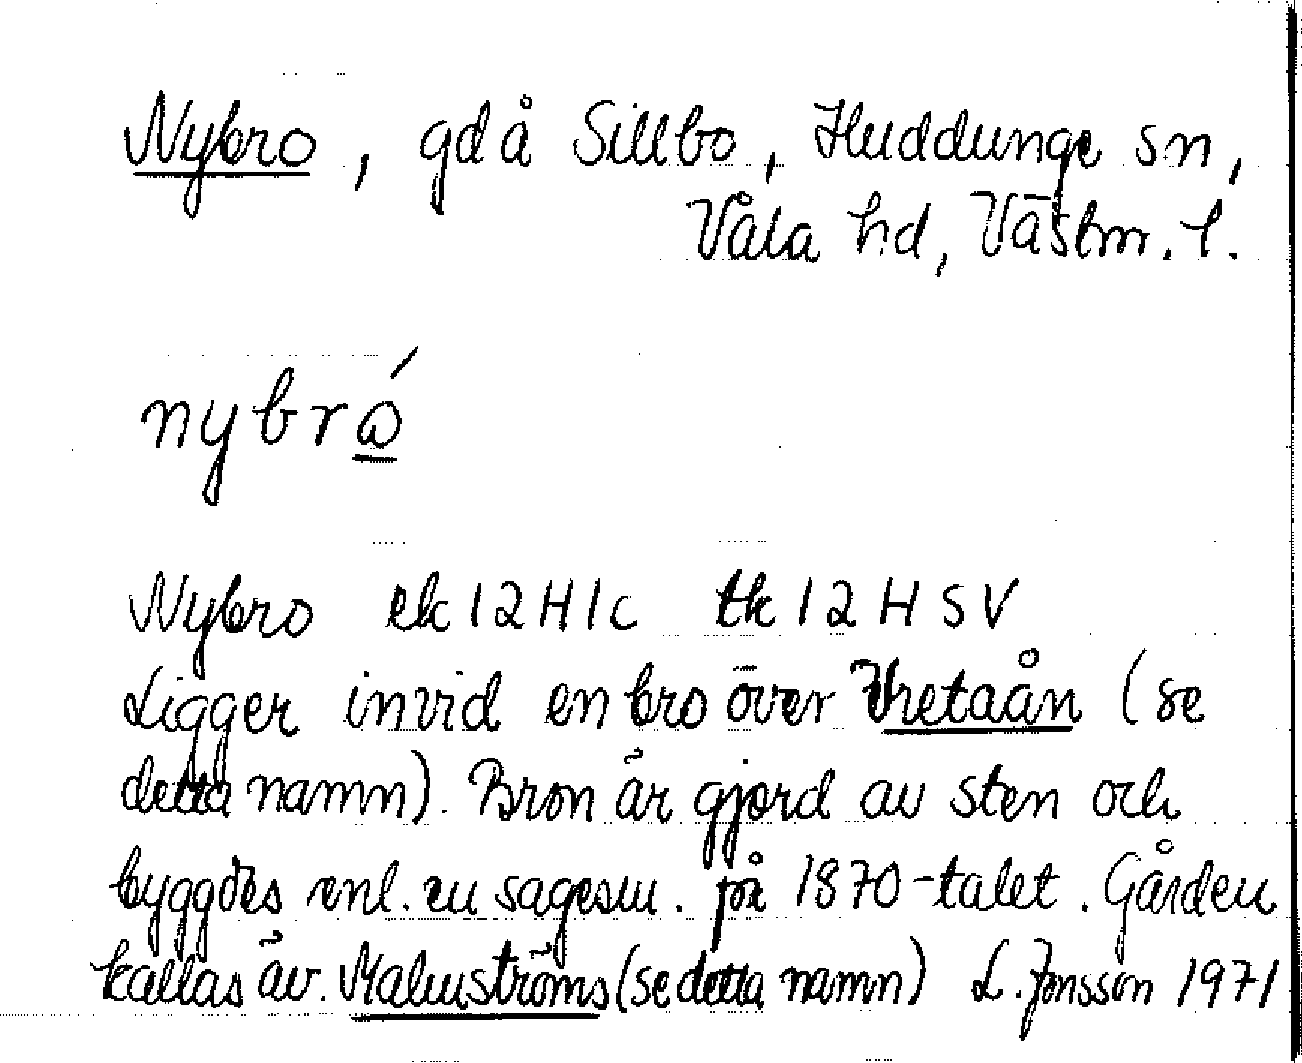 Nybro, gd å Sillbo, Huddunge sn,
Våla hd, Västm. l.
nybrώ
Nybro ek 12H1c tk 12H SV
Ligger invid en bro över Vretaån (se
detta namn). Bron är gjord av sten och
byggdes enl. en sagesm. på 1870-talet. Gården
kallas äv. Malmströms (se detta namn) L. Jonsson 1971